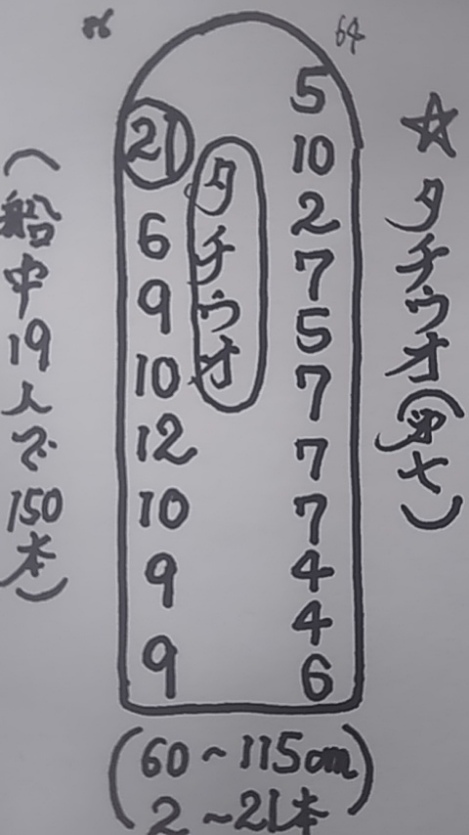 ☆タチウオ(㐧七)
64
5
10
2
7
5
7
7
7
4
4
6
タチウオ
86
21
6
9
10
12
10
9
9
(船中19人で150本)
(60～115cm
2～21本)